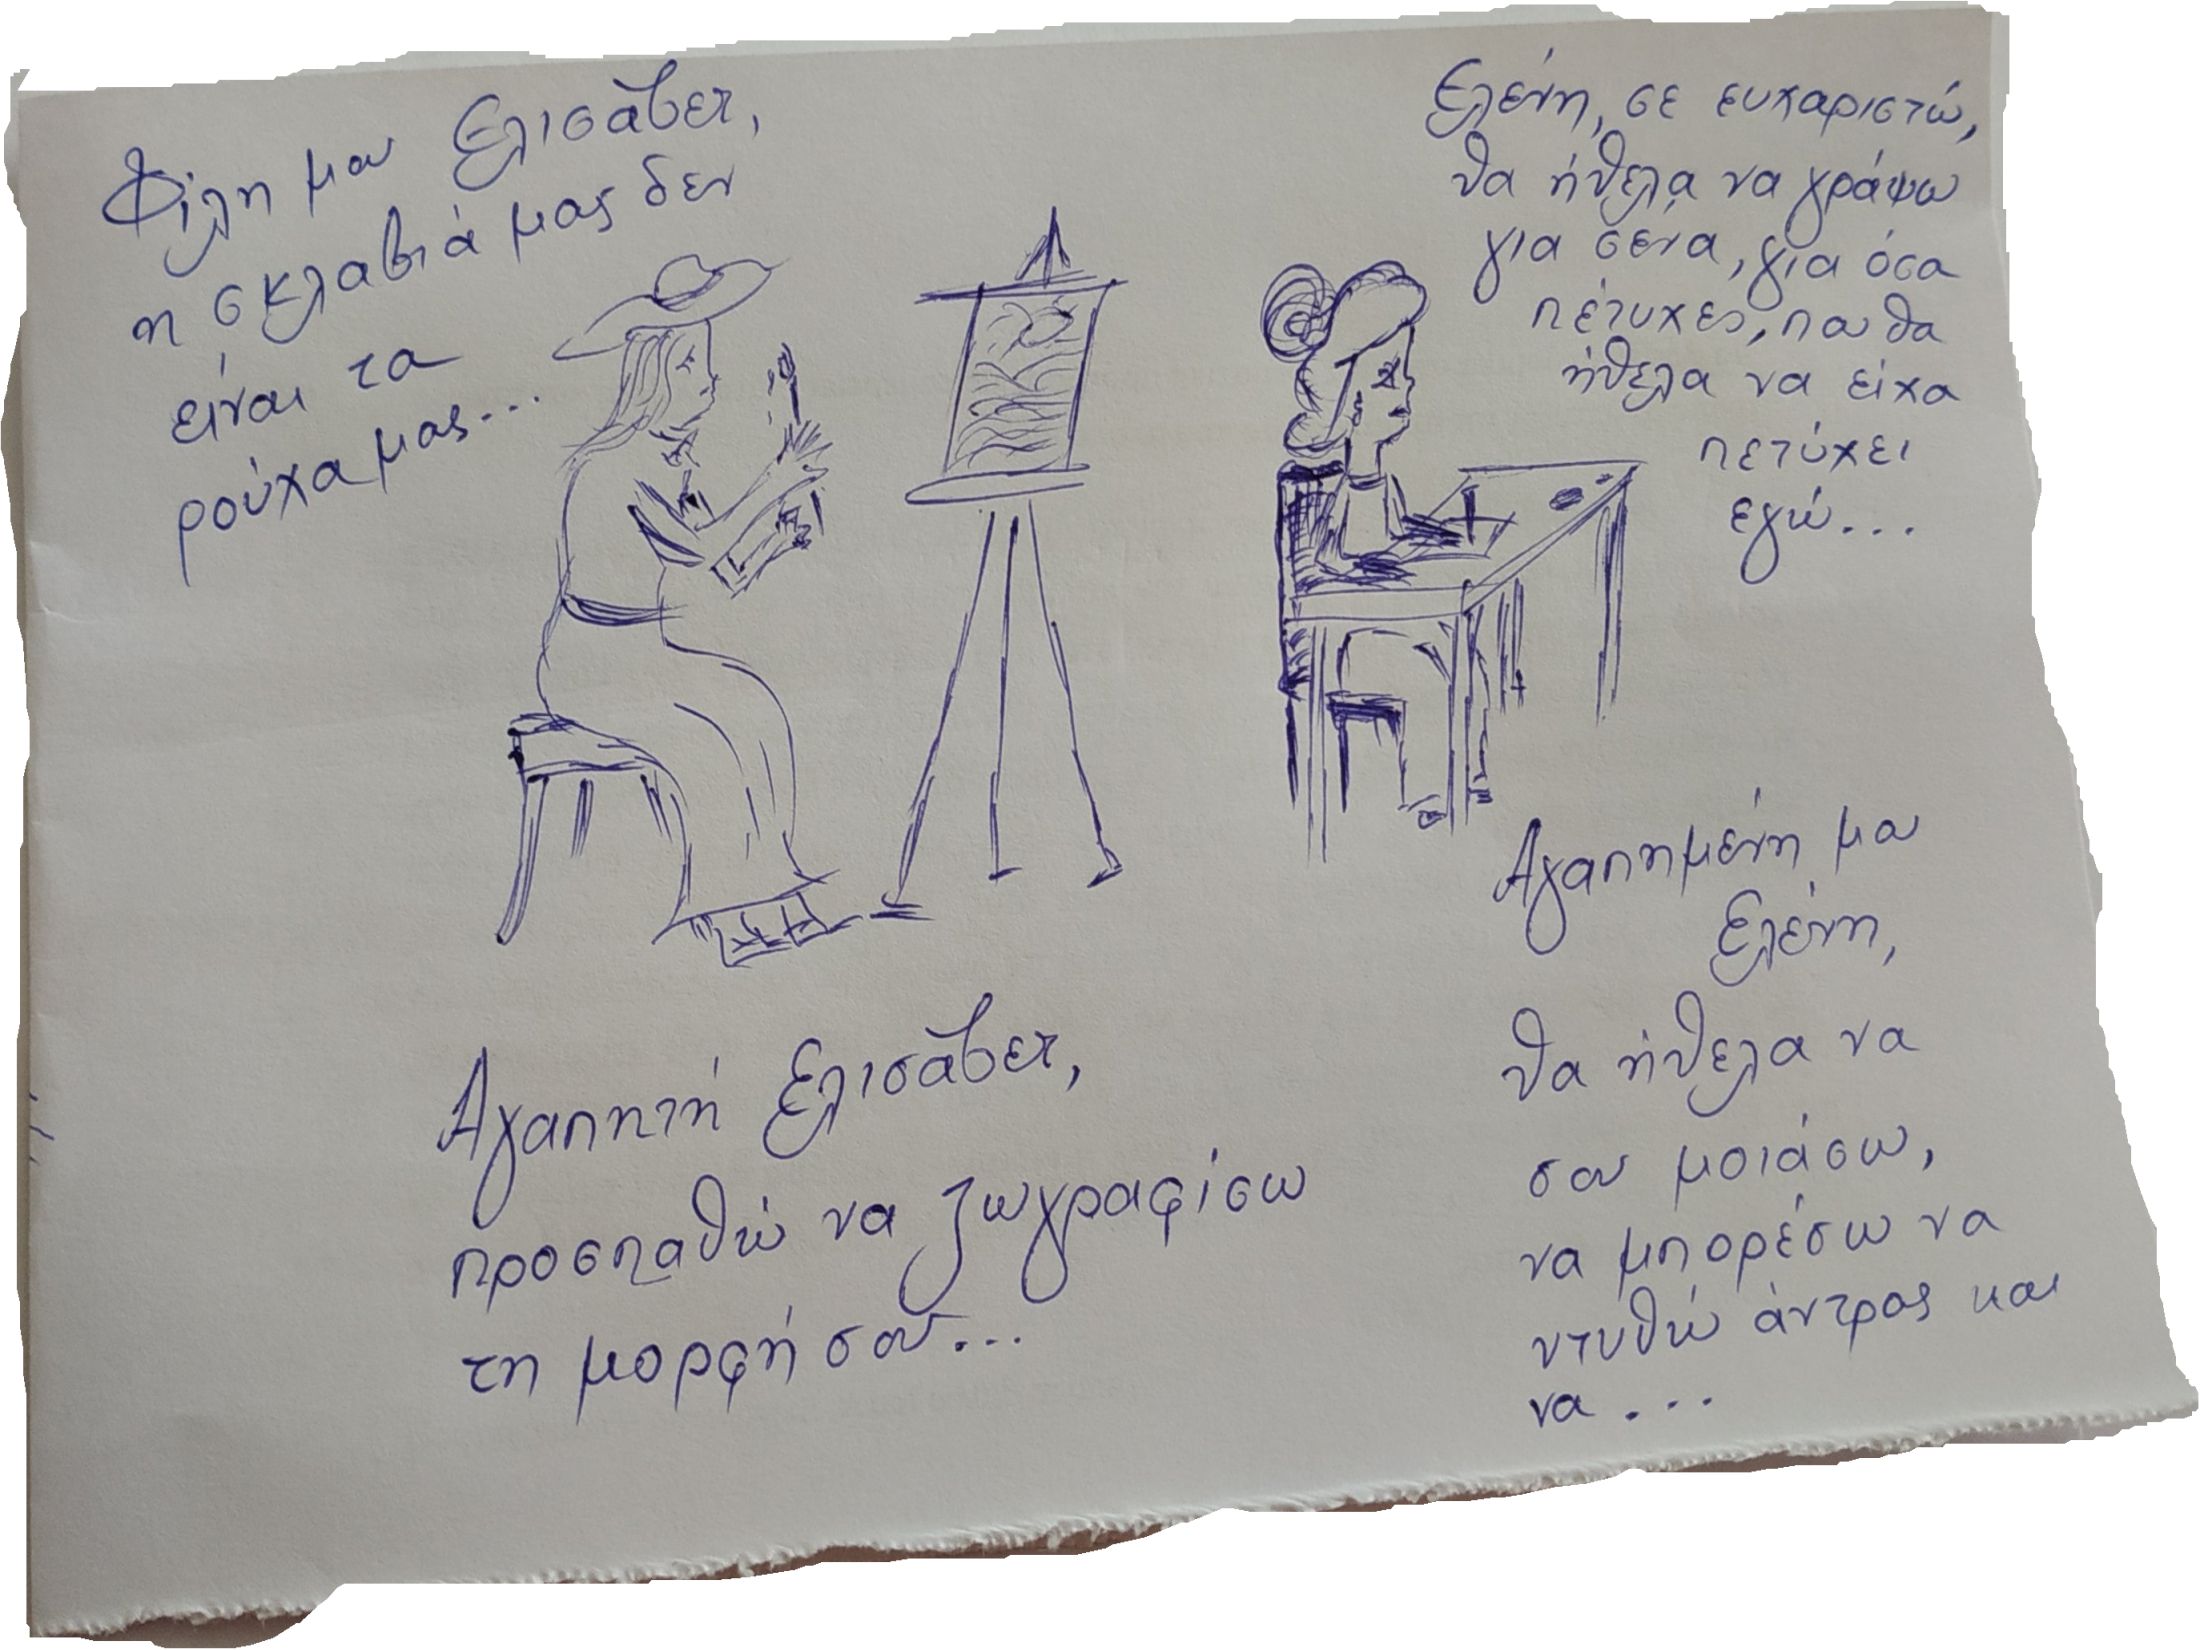 Φίλη μου Ελισάβετ,
η σκλαβιά μας δεν
είναι τα
ρούχα μας...
Ελένη, σε ευχαριστώ,
θα ήθελα να γράψω
για σένα, για όσα
πέτυχες, που θα
ήθελα να είχα
πετύχει
εγώ...
Αγαπητή Ελισάβετ,
προσπαθώ να ζωγραφίσω
τη μορφή σου...
Αγαπημένη μου
Ελένη,
θα ήθελα να
σου μοιάσω,
να μπορέσω να
ντυθώ άντρας και
να...